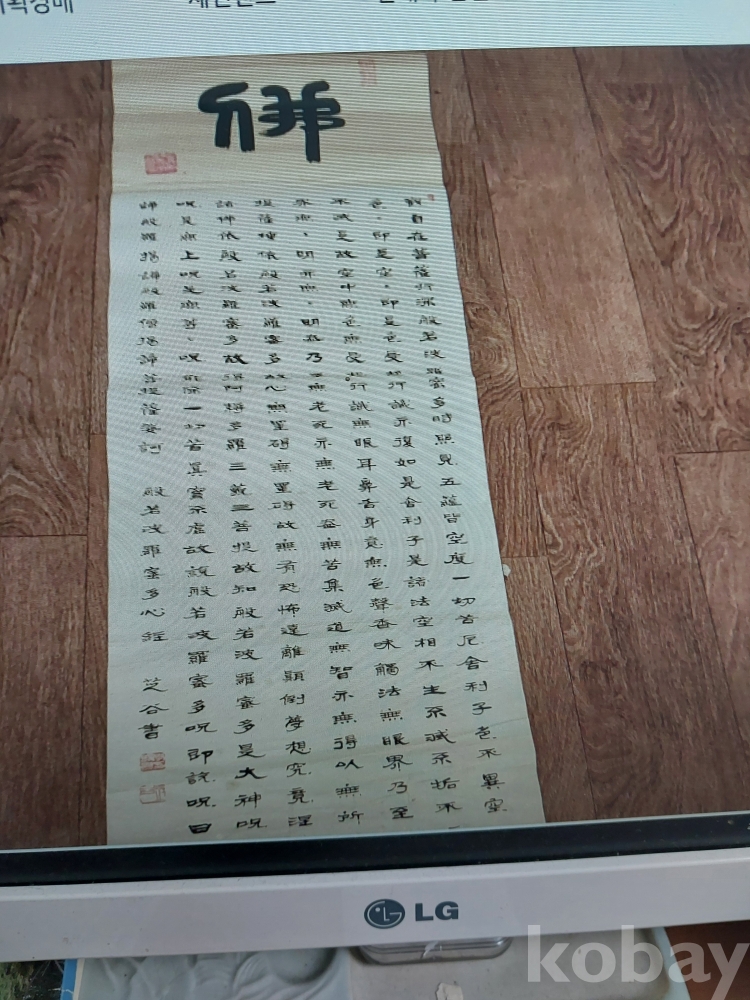 佛
觀自在菩薩行深般若波羅蜜多時照見五蘊皆空度一切苦厄舍利子色不異空
色、即是空、即是色受想行識亦復如是舍利子是諸法空相不生不滅不垢不
不減是故空中無色無受想行識無眼耳鼻舌身意無色聲香味觸法無眼界乃至
亦無、明亦無、明盡乃至無老死亦無老死盡無苦集滅道無智亦無得以無所
提薩埵依般若波羅蜜多故心無罣碍無罣碍故無有恐怖遠離顚倒夢想究竟涅
諸佛依般若波羅蜜多故得阿耨多羅三藐三菩提故知般若波羅蜜多是大神呪
呪是無上呪是無等、呪能除一切苦眞實不虛故說般若波羅蜜多呪卽說呪曰
諦般羅揭諦般羅僧揭諦菩提薩婆訶 般若波羅蜜多心經 芝谷書
LG
kobay